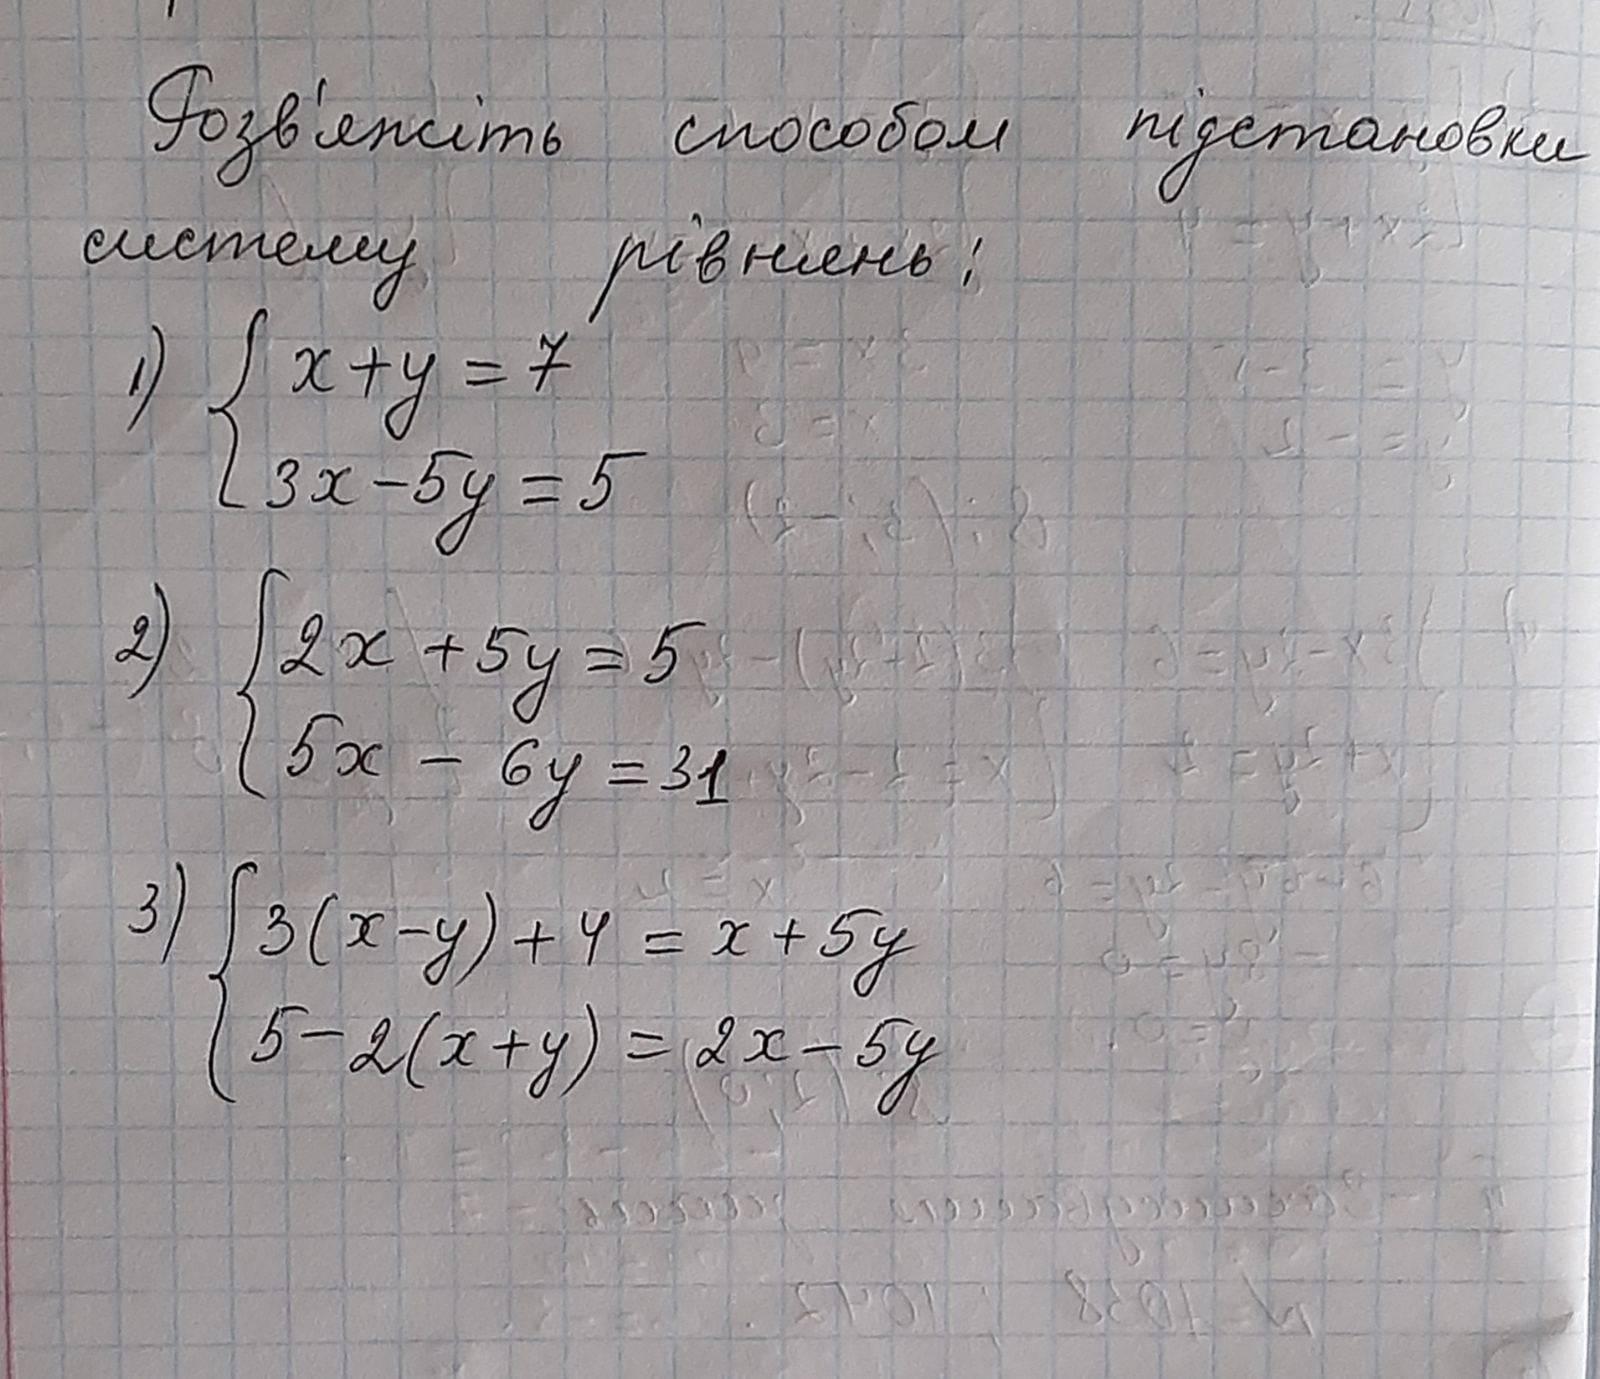 Розв'яжіть способом підстановки
систему рівнянь:
1) { x+y=7
3x-5y=5
2) { 2x+5y=5
5x-6y=31
3) { 3(x-y)+4=x+5y
5-2(x+y)=2x-5y